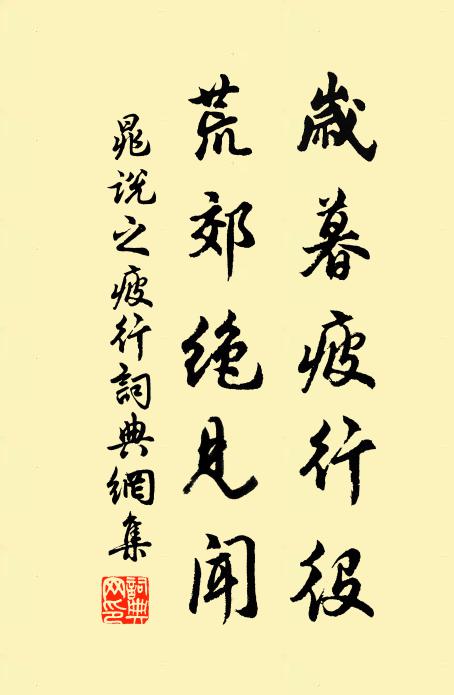 歲暮疲行役
荒郊絕見聞
晁說之疲行詞典網集
詞典網印